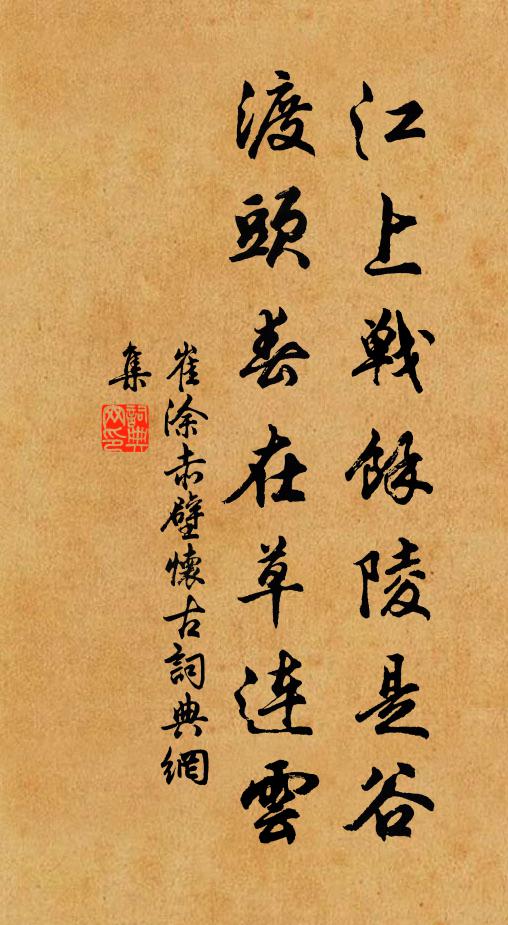 江上戰餘陵是谷
渡頭春在草連雲
崔涂赤壁懷古詞典網
集
詞典網印